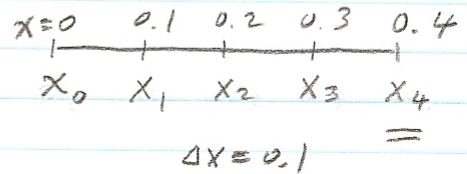 x=0 0.1 0.2 0.3 0.4
X₀ X₁ X₂ X₃ X₄
ΔX = 0.1